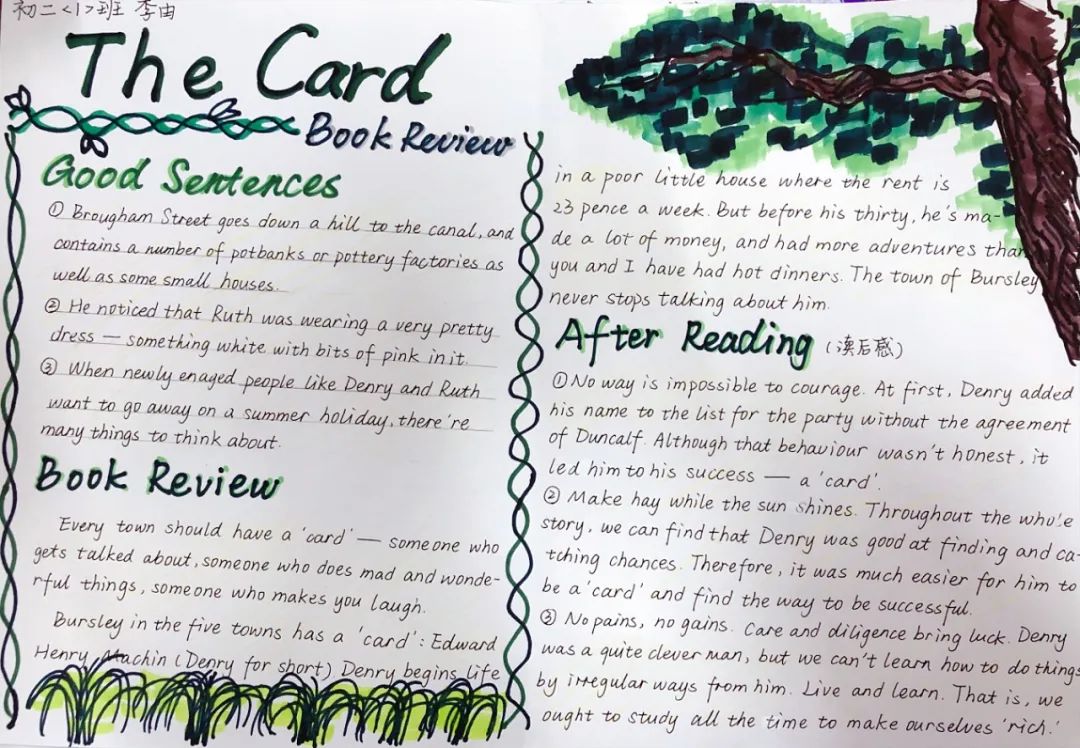 初二<1>班 李由
The Card
Book Review
Good Sentences
① Brougham Street goes down a hill to the canal, and
contains a number of potbanks or pottery factories as
well as some small houses.
② He noticed that Ruth was wearing a very pretty
dress — something white with bits of pink in it.
③ When newly enaged people like Denry and Ruth
want to go away on a summer holiday, there're
many things to think about.
Book Review
Every town should have a 'card' — someone who
gets talked about, someone who does mad and wonde-
rful things, someone who makes you laugh.
Bursley in the five towns has a 'card': Edward
Henry Machin (Denry for short). Denry begins life
in a poor little house where the rent is
23 pence a week. But before his thirty, he's ma-
de a lot of money, and had more adventures than
you and I have had hot dinners. The town of Bursley
never stops talking about him.
After Reading (读后感)
① No way is impossible to courage. At first, Denry added
his name to the list for the party without the agreement
of Duncalf. Although that behaviour wasn't honest, it
led him to his success — a 'card'.
② Make hay while the sun shines. Throughout the whole
story, we can find that Denry was good at finding and ca-
tching chances. Therefore, it was much easier for him to
be a 'card' and find the way to be successful.
③ No pains, no gains. Care and diligence bring luck. Denry
was a quite clever man, but we can't learn how to do things
by irregular ways from him. Live and learn. That is, we
ought to study all the time to make ourselves 'rich.'